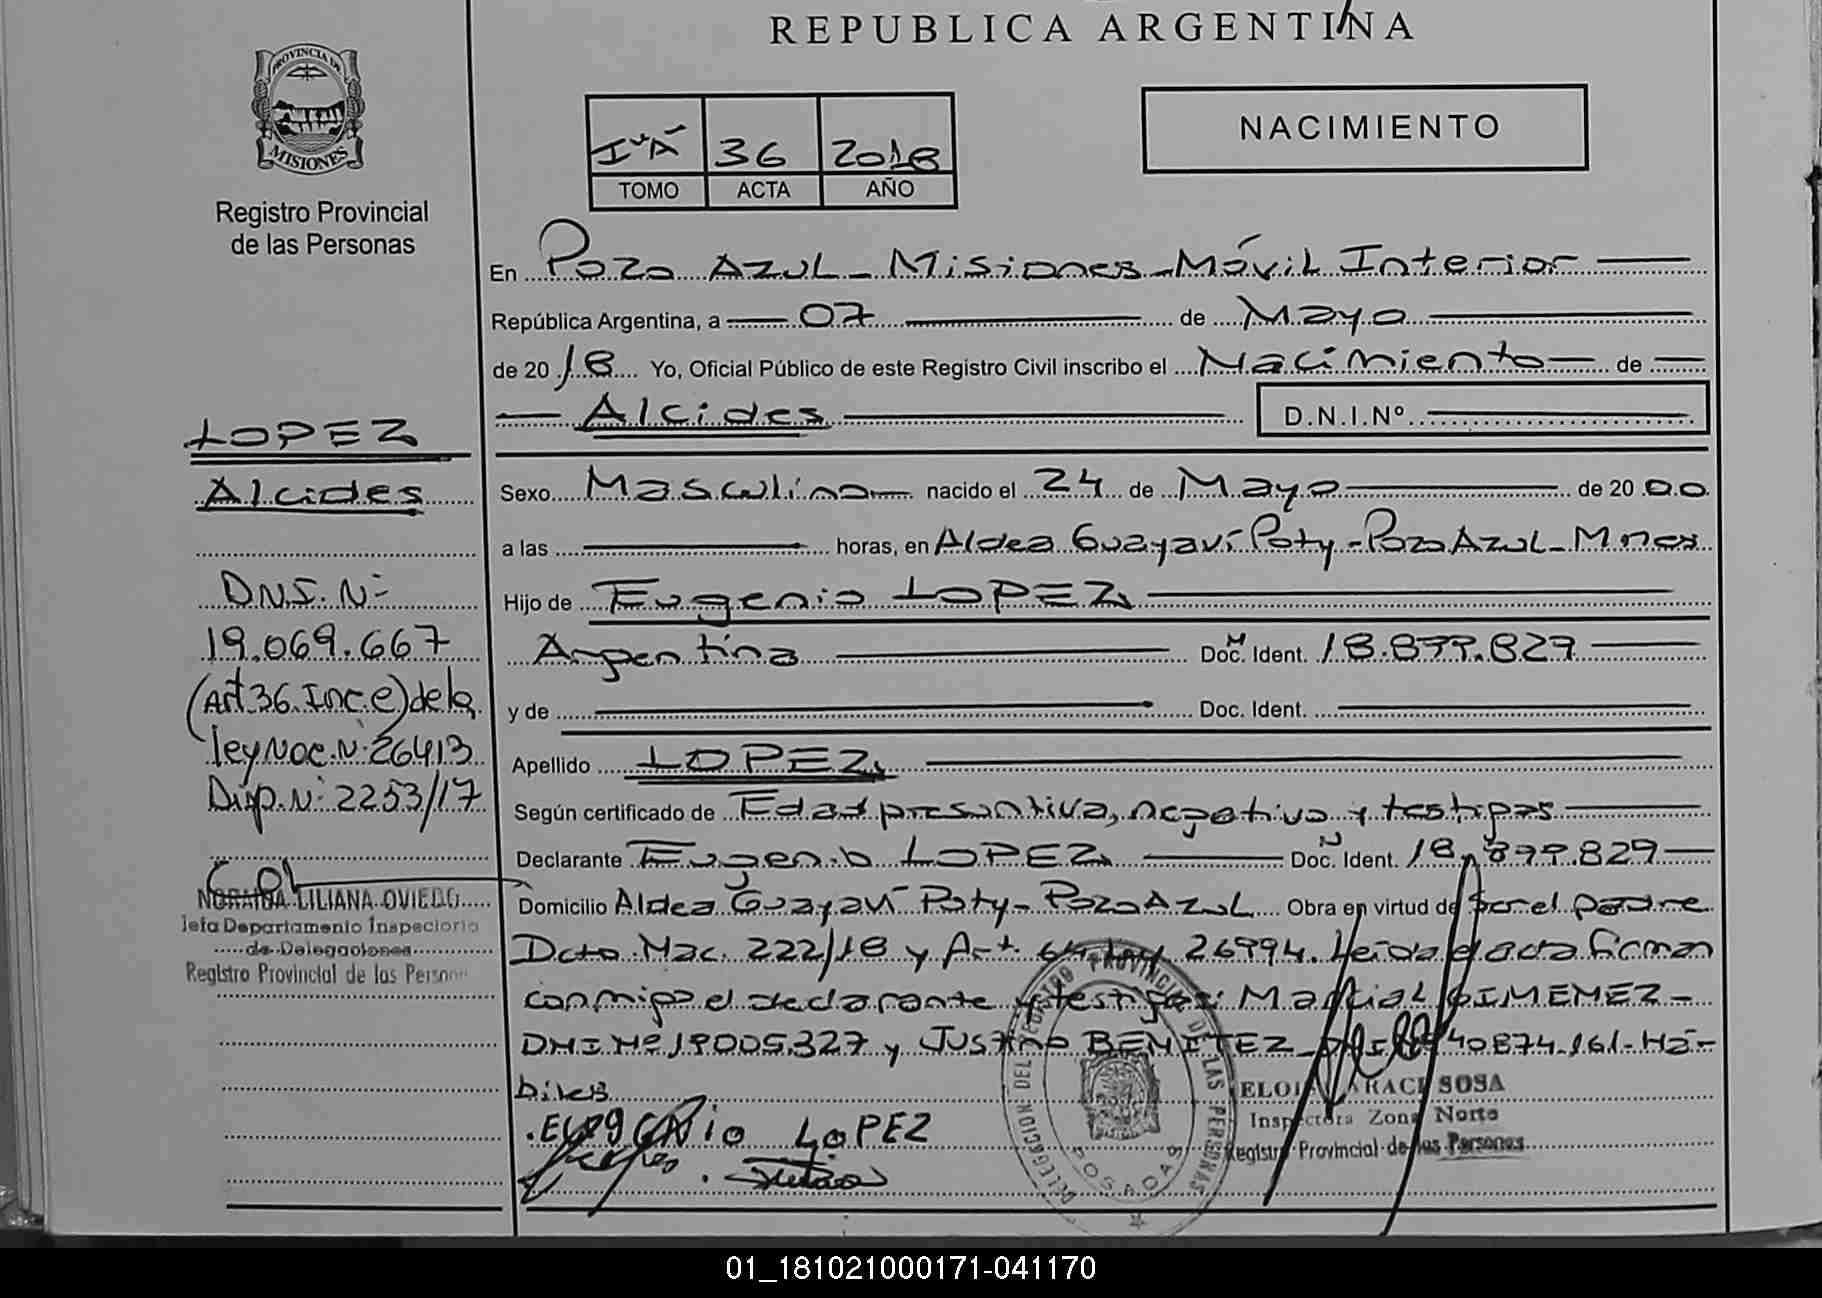 REPUBLICA ARGENTINA
PROVINCIA DE
MISIONES
Registro Provincial
de las Personas
36 2018
TOMO ACTA AÑO
NACIMIENTO
En Pozo Azul - Misiones - Móvil Interior
República Argentina, a 07 de Mayo
de 2018 Yo, Oficial Público de este Registro Civil inscribo el Nacimiento de
Alcides D.N.I.Nº
LOPEZ
Alcides
Sexo Masculino nacido el 24 de Mayo de 2000
a las horas, en Aldea Guayaví Poty - Pozo Azul - Mnes
Hijo de Eugenio LOPEZ
Argentina Doc. Ident. 18.899.829
y de Doc. Ident.
Apellido LOPEZ
Según certificado de Edad presuntiva, negativo y testigos
Declarante Eugenio LOPEZ Doc. Ident. 18.899.829
Domicilio Aldea Guayaví Poty - Pozo Azul Obra en virtud de ser el padre
Dcto. Nac. 222/18 y Art. 64 Ley 26994. Leída el acta firman
conmigo el declarante y testigos: Marcial GIMENEZ -
DNI Nº 19005.327 y Justino BENITEZ - 40874.161 - Há-
biles
D.N.I. Nº
19.069.667
(Art. 36. Inc. e) de la
ley Nac. Nº 26413
Disp. Nº 2253/17
NORAIDA LILIANA OVIEDO
Jefa Departamento Inspectoria
de Delegaciones
Registro Provincial de las Personas
EUGENIO LOPEZ
DELEGACION DEL REGISTRO PROVINCIAL DE LAS PERSONAS
POSADAS
SOSA
Inspectora Zona Norte
Registro Provincial de las Personas
01_181021000171-041170